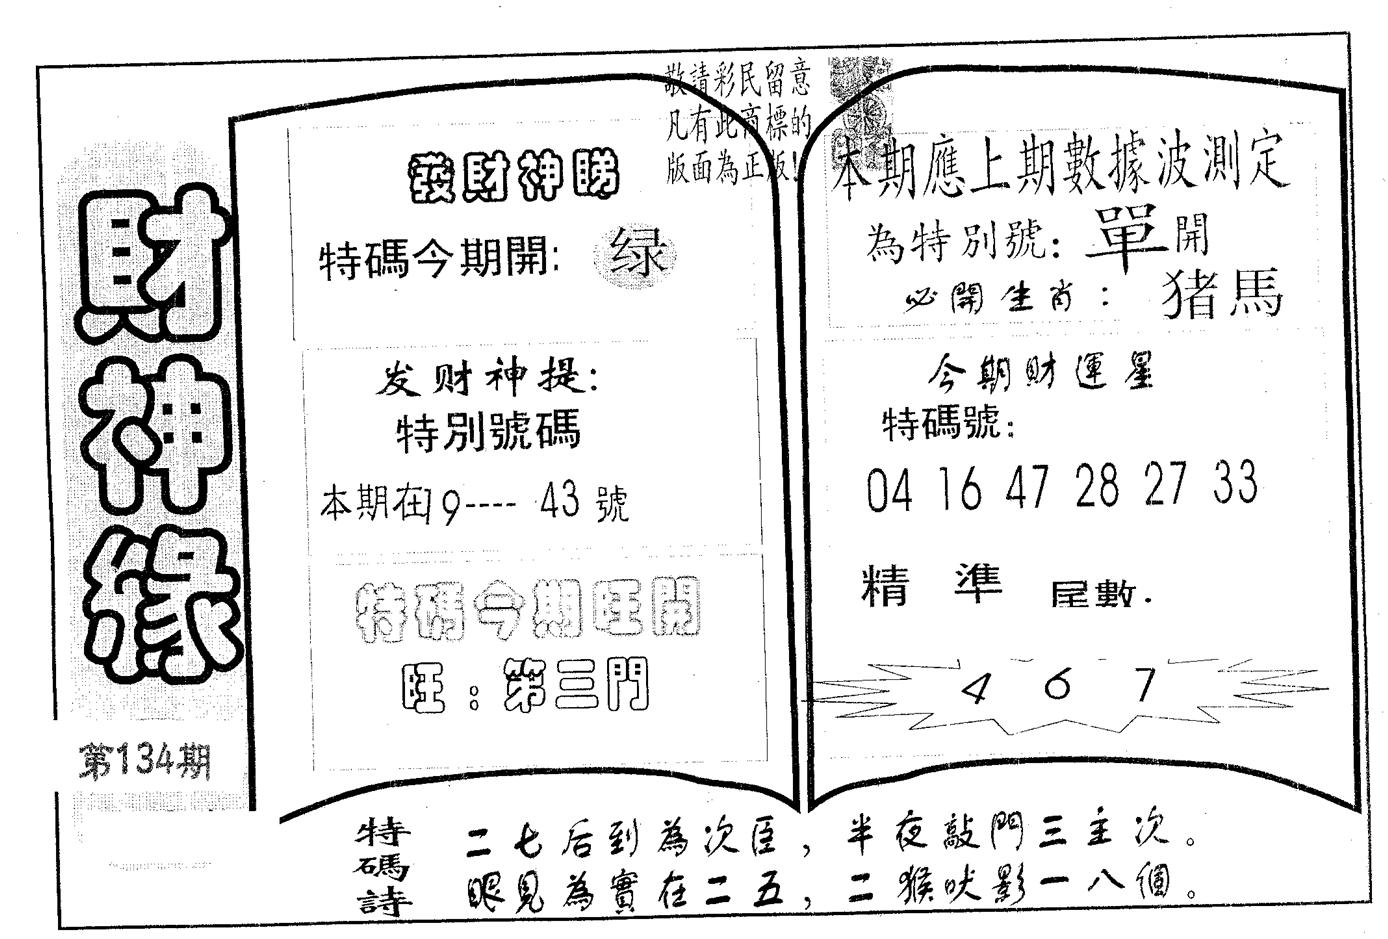 財神緣
第134期
敬請彩民留意
凡有此商標的
版面為正版!
發財神睇
特碼今期開: 绿
发财神提:
特別號碼
本期在19----43號
特碼今期旺開
旺:第三門
本期應上期數據波測定
為特別號: 單開
必開生肖: 猪馬
今期財運星
特碼號:
04 16 47 28 27 33
精準尾數.
4 6 7
特碼詩
二七后到為次臣,半夜敲門三主次。
眼見為實在二五,二猴吠影一八個。